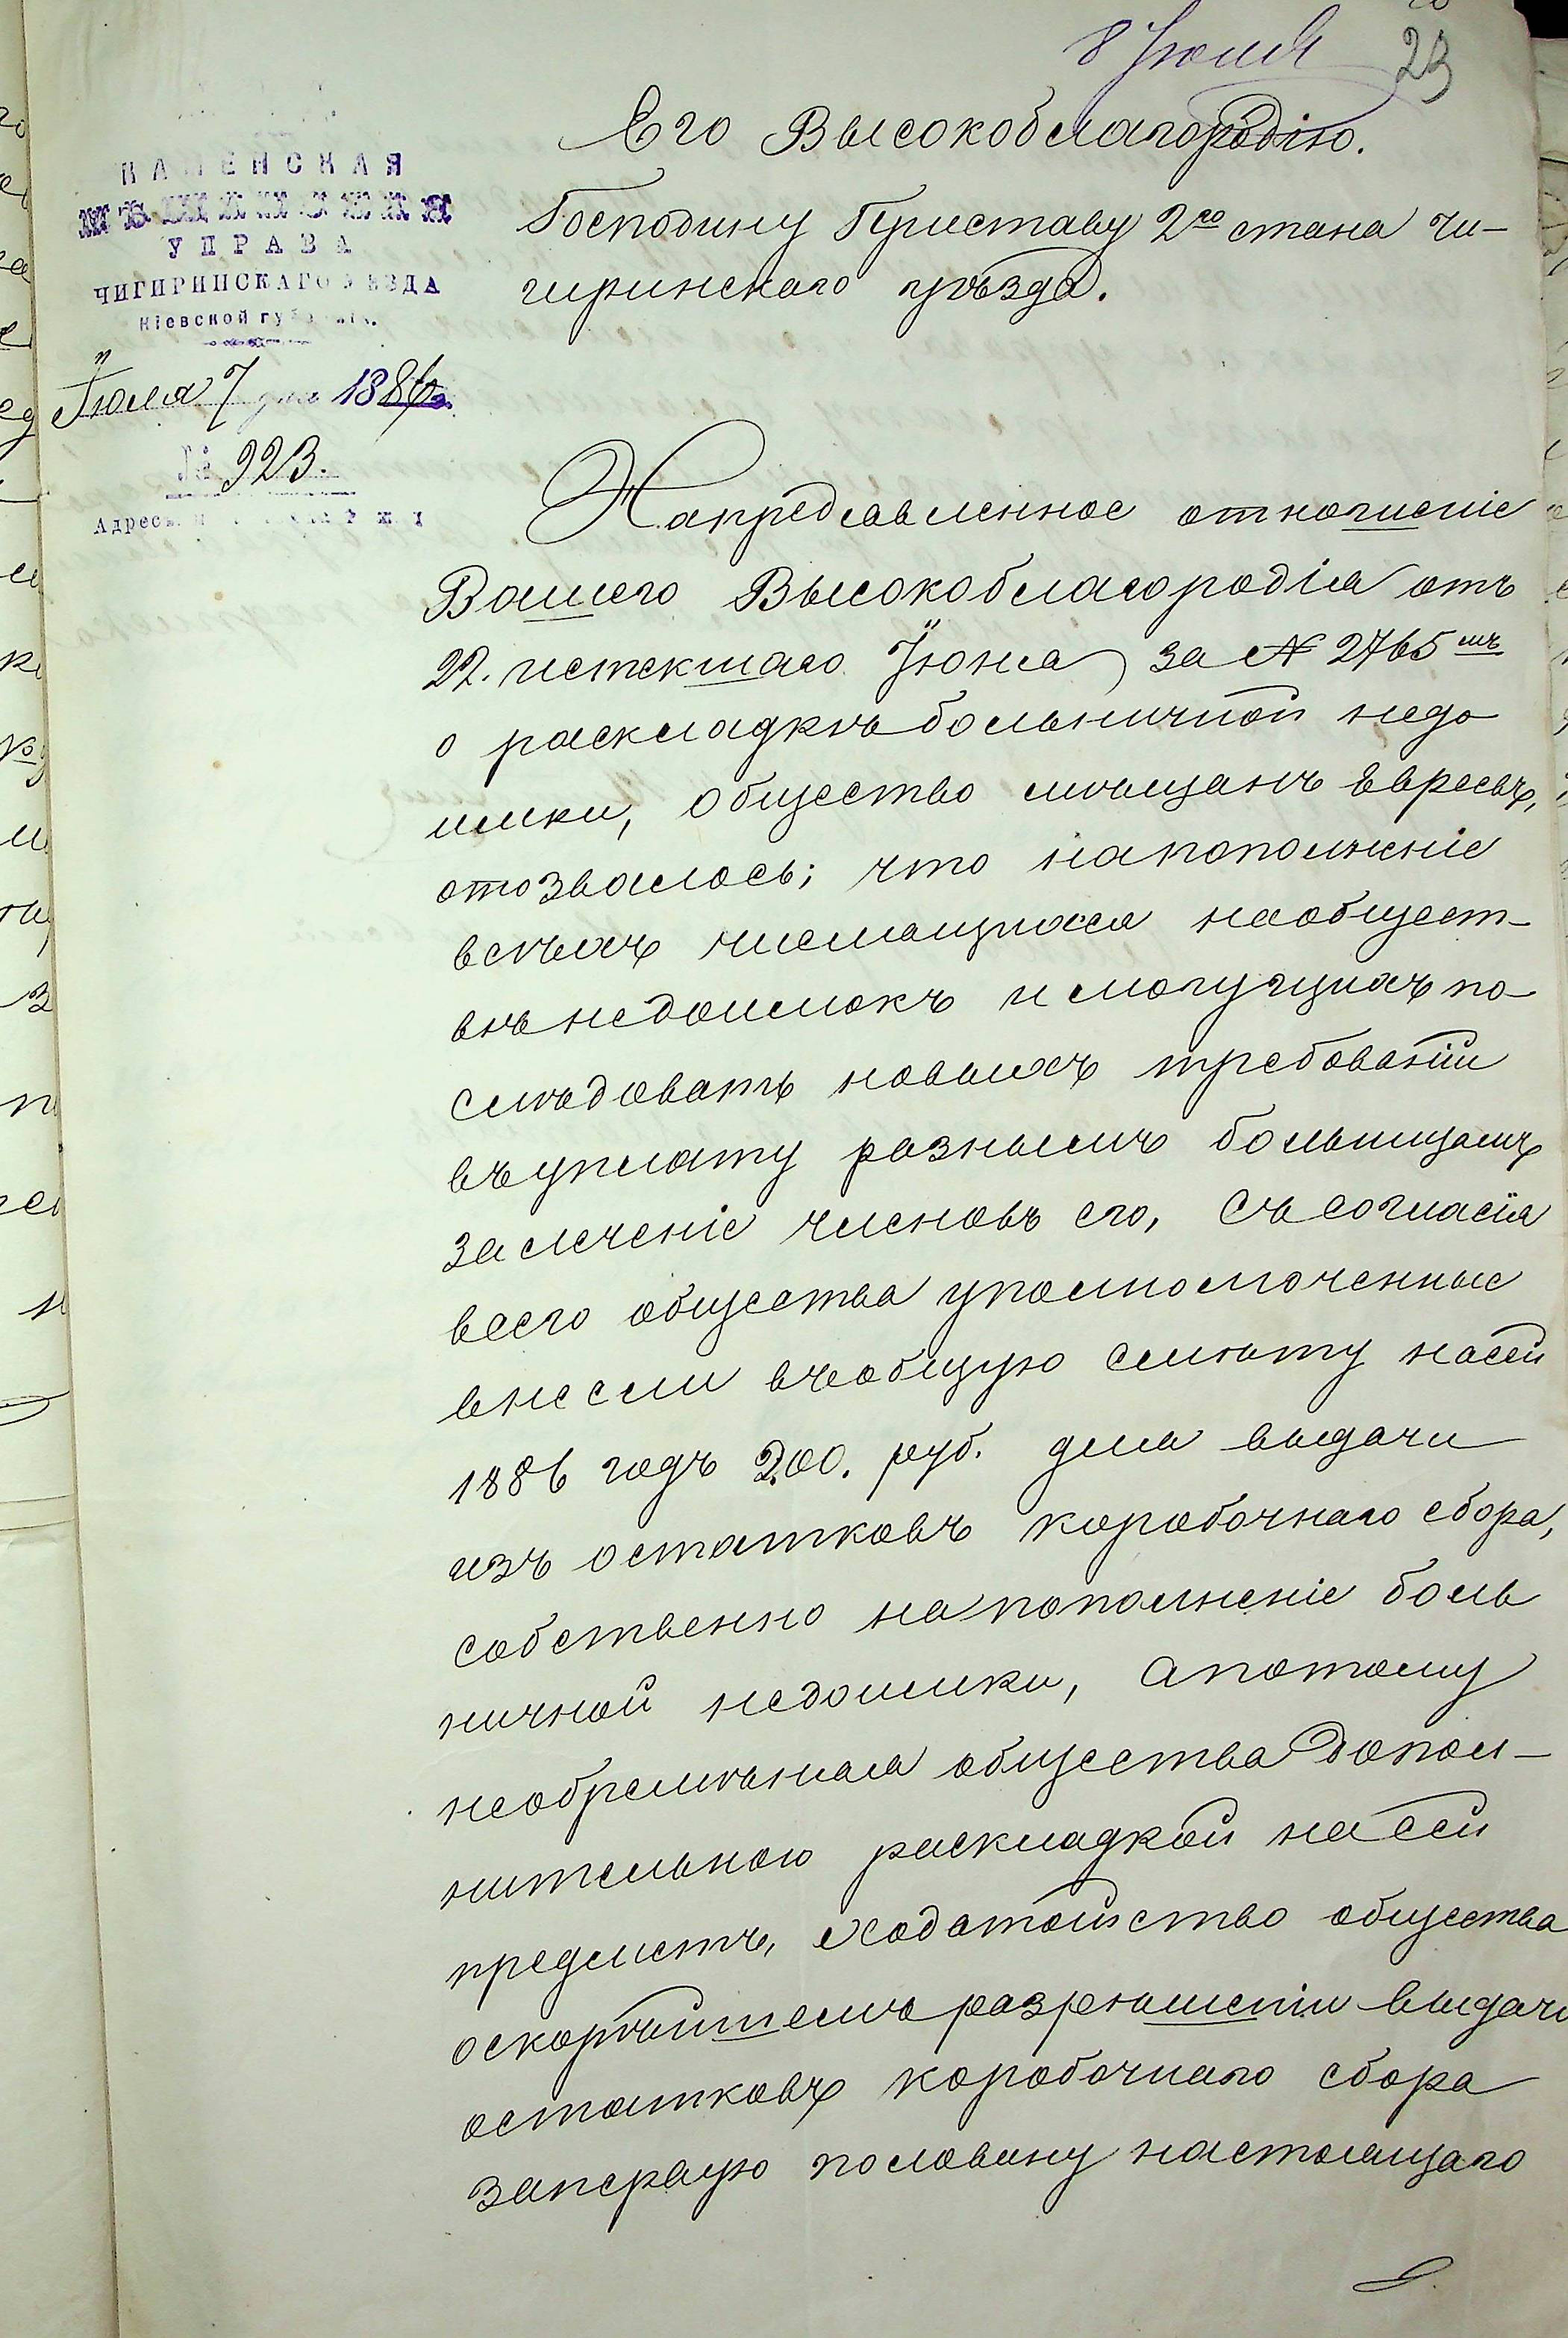 8 Июля
23
КАМЕНСКАЯ
МѢЩАНСКАЯ
УПРАВА
ЧИГИРИНСКАГО УѢЗДА
Кіевской губерніи.
Іюля 7 дня 1886 г.
№ 923.
Адресъ
Его Высокоблагородію.
Господину Приставу 2го стана Чи-
гиринскаго уѣзда.
Напредставленное отношеніе
Вашего Высокоблагородія отъ
22. истекшаго Іюня за № 2765мъ
о раскладкѣ больничной недо
имки, общество мѣщанъ Евреевъ,
отозвалось; что напополненіе
всѣхъ числящихся наобщест-
вѣ недоимокъ и могущихъ по-
слѣдовать новыхъ требованій
въуплату разнымъ больницамъ
залеченіе членовъ его, Съ согласія
всего общества уполномоченные
внесли въобщую смѣту насей
1886 годъ 200. руб. для выдачи
изъ остатковъ коробочнаго сбора,
собственно на пополненіе боль
ничной недоимки, апотому
необремѣняя общества допол-
нительною раскладкой на сей
предметъ, ходатайство общества
оскорѣйшемъ разрѣшеніи выдачи
остатковъ коробочнаго сбора
запервую половину настоящаго